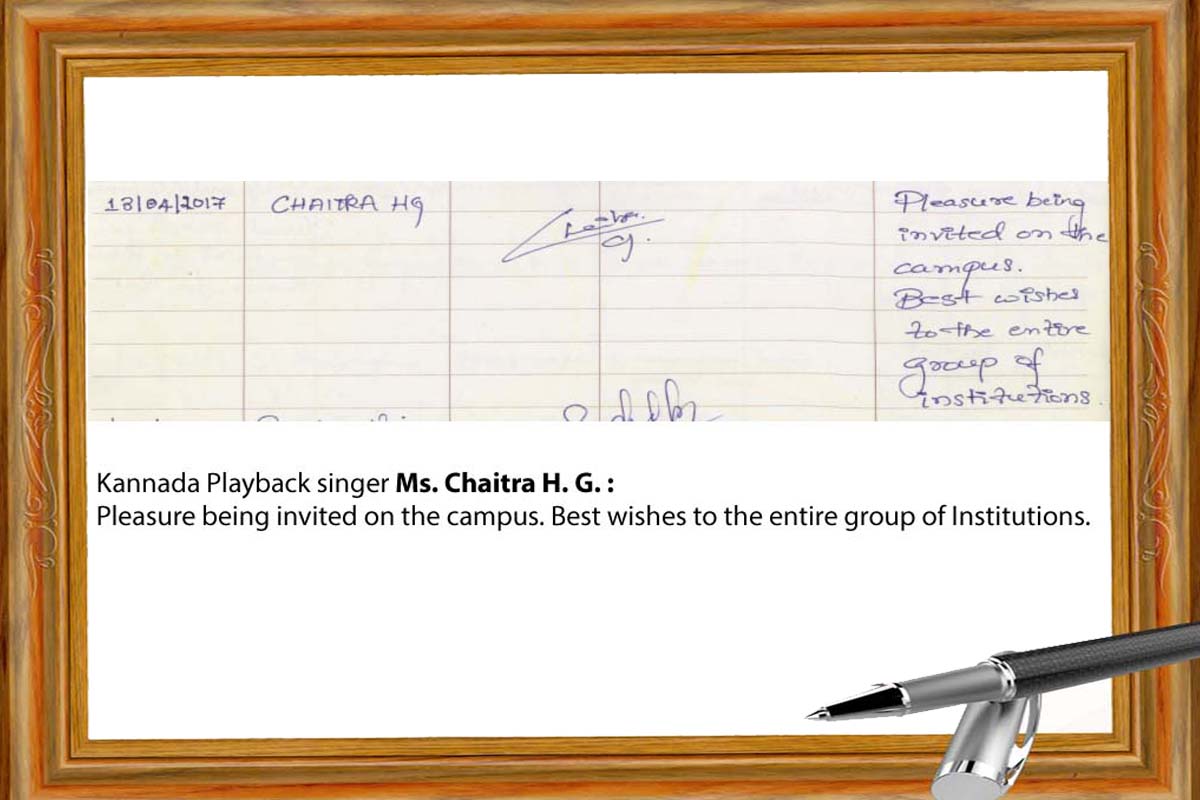 13/04/2017 CHAITRA HG
Pleasure being
invited on the
campus.
Best wishes
to the entire
group of
institutions.
Kannada Playback singer Ms. Chaitra H. G. :
Pleasure being invited on the campus. Best wishes to the entire group of Institutions.